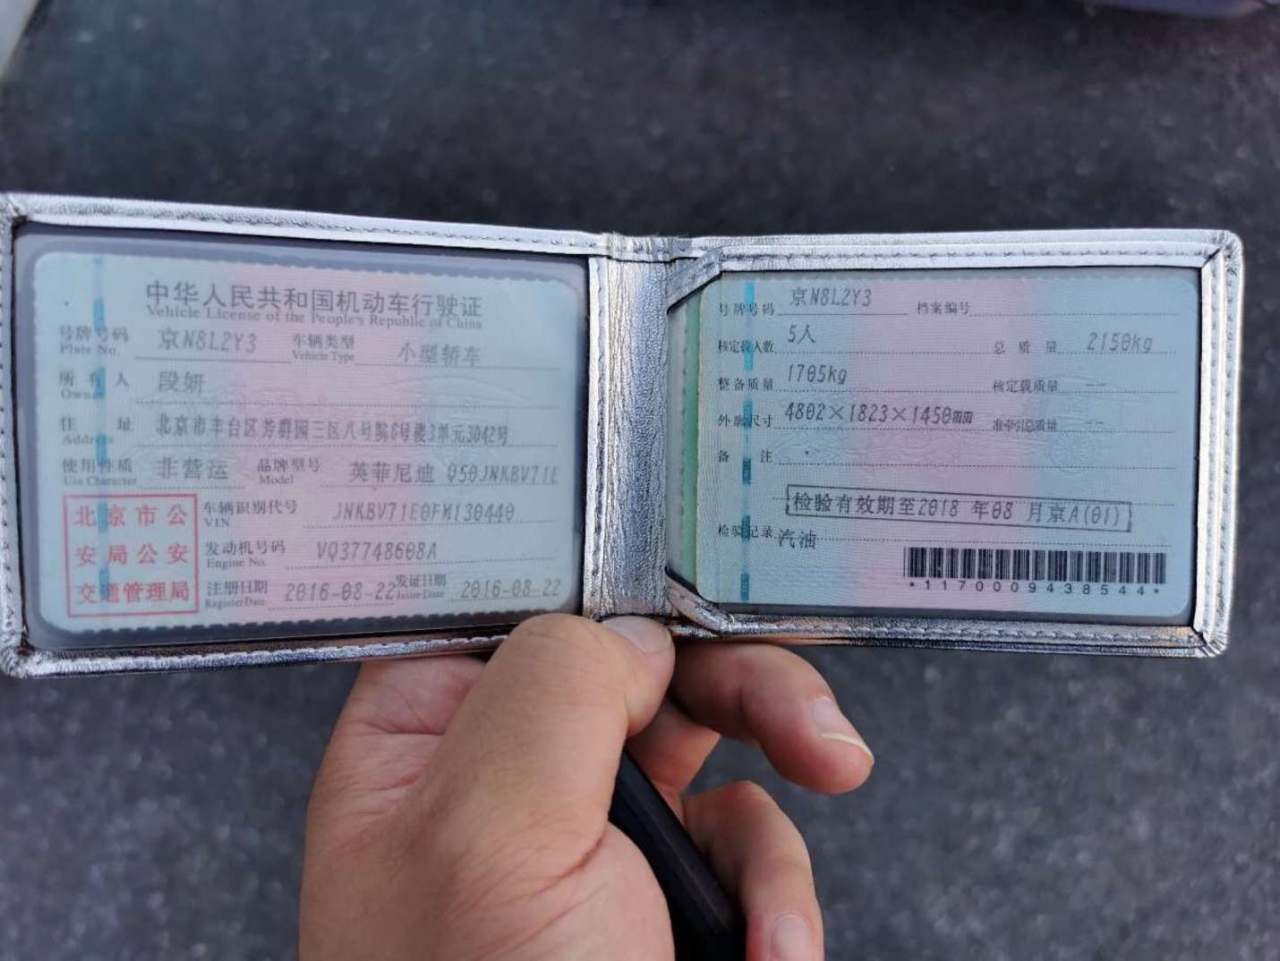 中华人民共和国机动车行驶证
Vehicle License of the People's Republic of China
号牌号码 京N8L2Y3 车辆类型 小型轿车
Plate No. Vehicle Type
所有人 段妍
Owner
住址 北京市丰台区芳群园三区八号院6号楼3单元3042号
Address
使用性质 非营运 品牌型号 英菲尼迪 Q50JNKBV71E
Use Character Model
北京市公
安局公安
交通管理局
车辆识别代号 JNKBV71E0FM130440
VIN
发动机号码 VQ37748608A
Engine No.
注册日期 2016-08-22 发证日期 2016-08-22
Register Date Issue Date
号牌号码 京N8L2Y3 档案编号
核定载人数 5人 总质量 2150kg
整备质量 1705kg 核定载质量 --
外廓尺寸 4802×1823×1450mm 准牵引总质量 --
备注
检验有效期至2018 年08 月京A(01)
检验记录 汽油
*1170009438544*